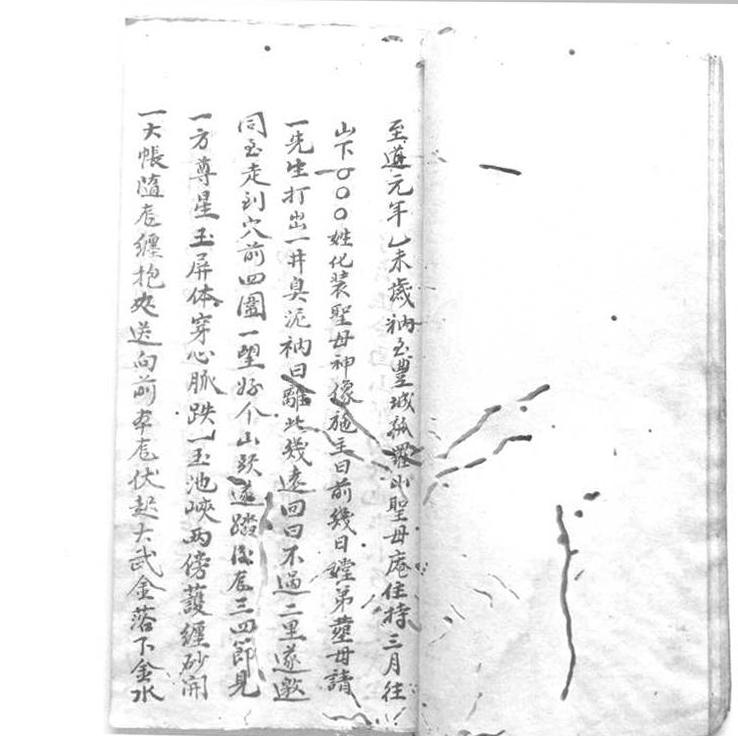 至道元年乙未歲衲至豐城孤羅山聖母庵住持三月往
山下○○○姓化裝聖母神像施主曰前幾日嫂弟葬母請
一先生打出一井臭泥衲曰離此幾遠回曰不過二里遂邀
同至走到穴前四圍一望好个山頭遂踏後龍三四節見
一方尊星玉屏体穿心脈跌一玉池峽兩傍護纏砂開
一大帳隨龍纏抱夾送向前本龍伏起大武金落下金水